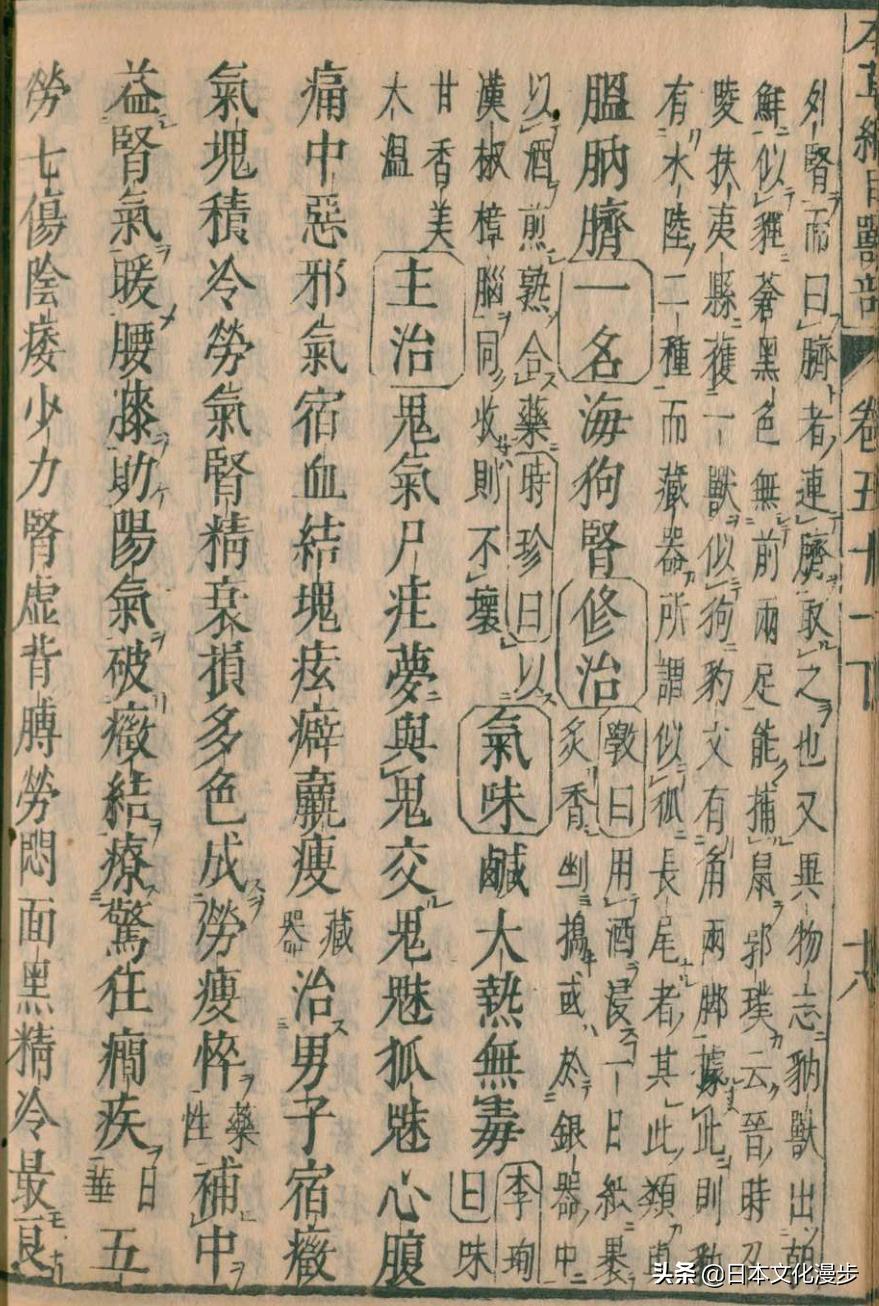 本草綱目獸部 卷五十一下 十八
外腎而曰臍者連臍取之也又異物志豽獸出胡
鮮似貍蒼黑色無前兩足能捕鼠郭璞云晉時召
陵扶夷縣獲一獸似狗豹文有角兩脚據此則豽
有水陸二種而藏器所謂似狐長尾者其此類與
膃肭臍 一名 海狗腎 修治 斅曰用酒浸一日紙裹炙香剉搗或於銀器中
以酒煎熟合藥時珍曰以漢椒樟腦同收則不壞 氣味 鹹大熱無毒 李珣曰味
甘香美大溫 主治 鬼氣尸疰夢與鬼交鬼魅狐魅心腹
痛中惡邪氣宿血結塊痃癖羸瘦藏器治男子宿癥
氣塊積冷勞氣腎精衰損多色成勞瘦悴藥性補中
益腎氣暖腰膝助陽氣破癥結療驚狂癎疾日華五
勞七傷陰痿少力腎虛背膊勞悶面黑精冷最良
头条 @日本文化漫步